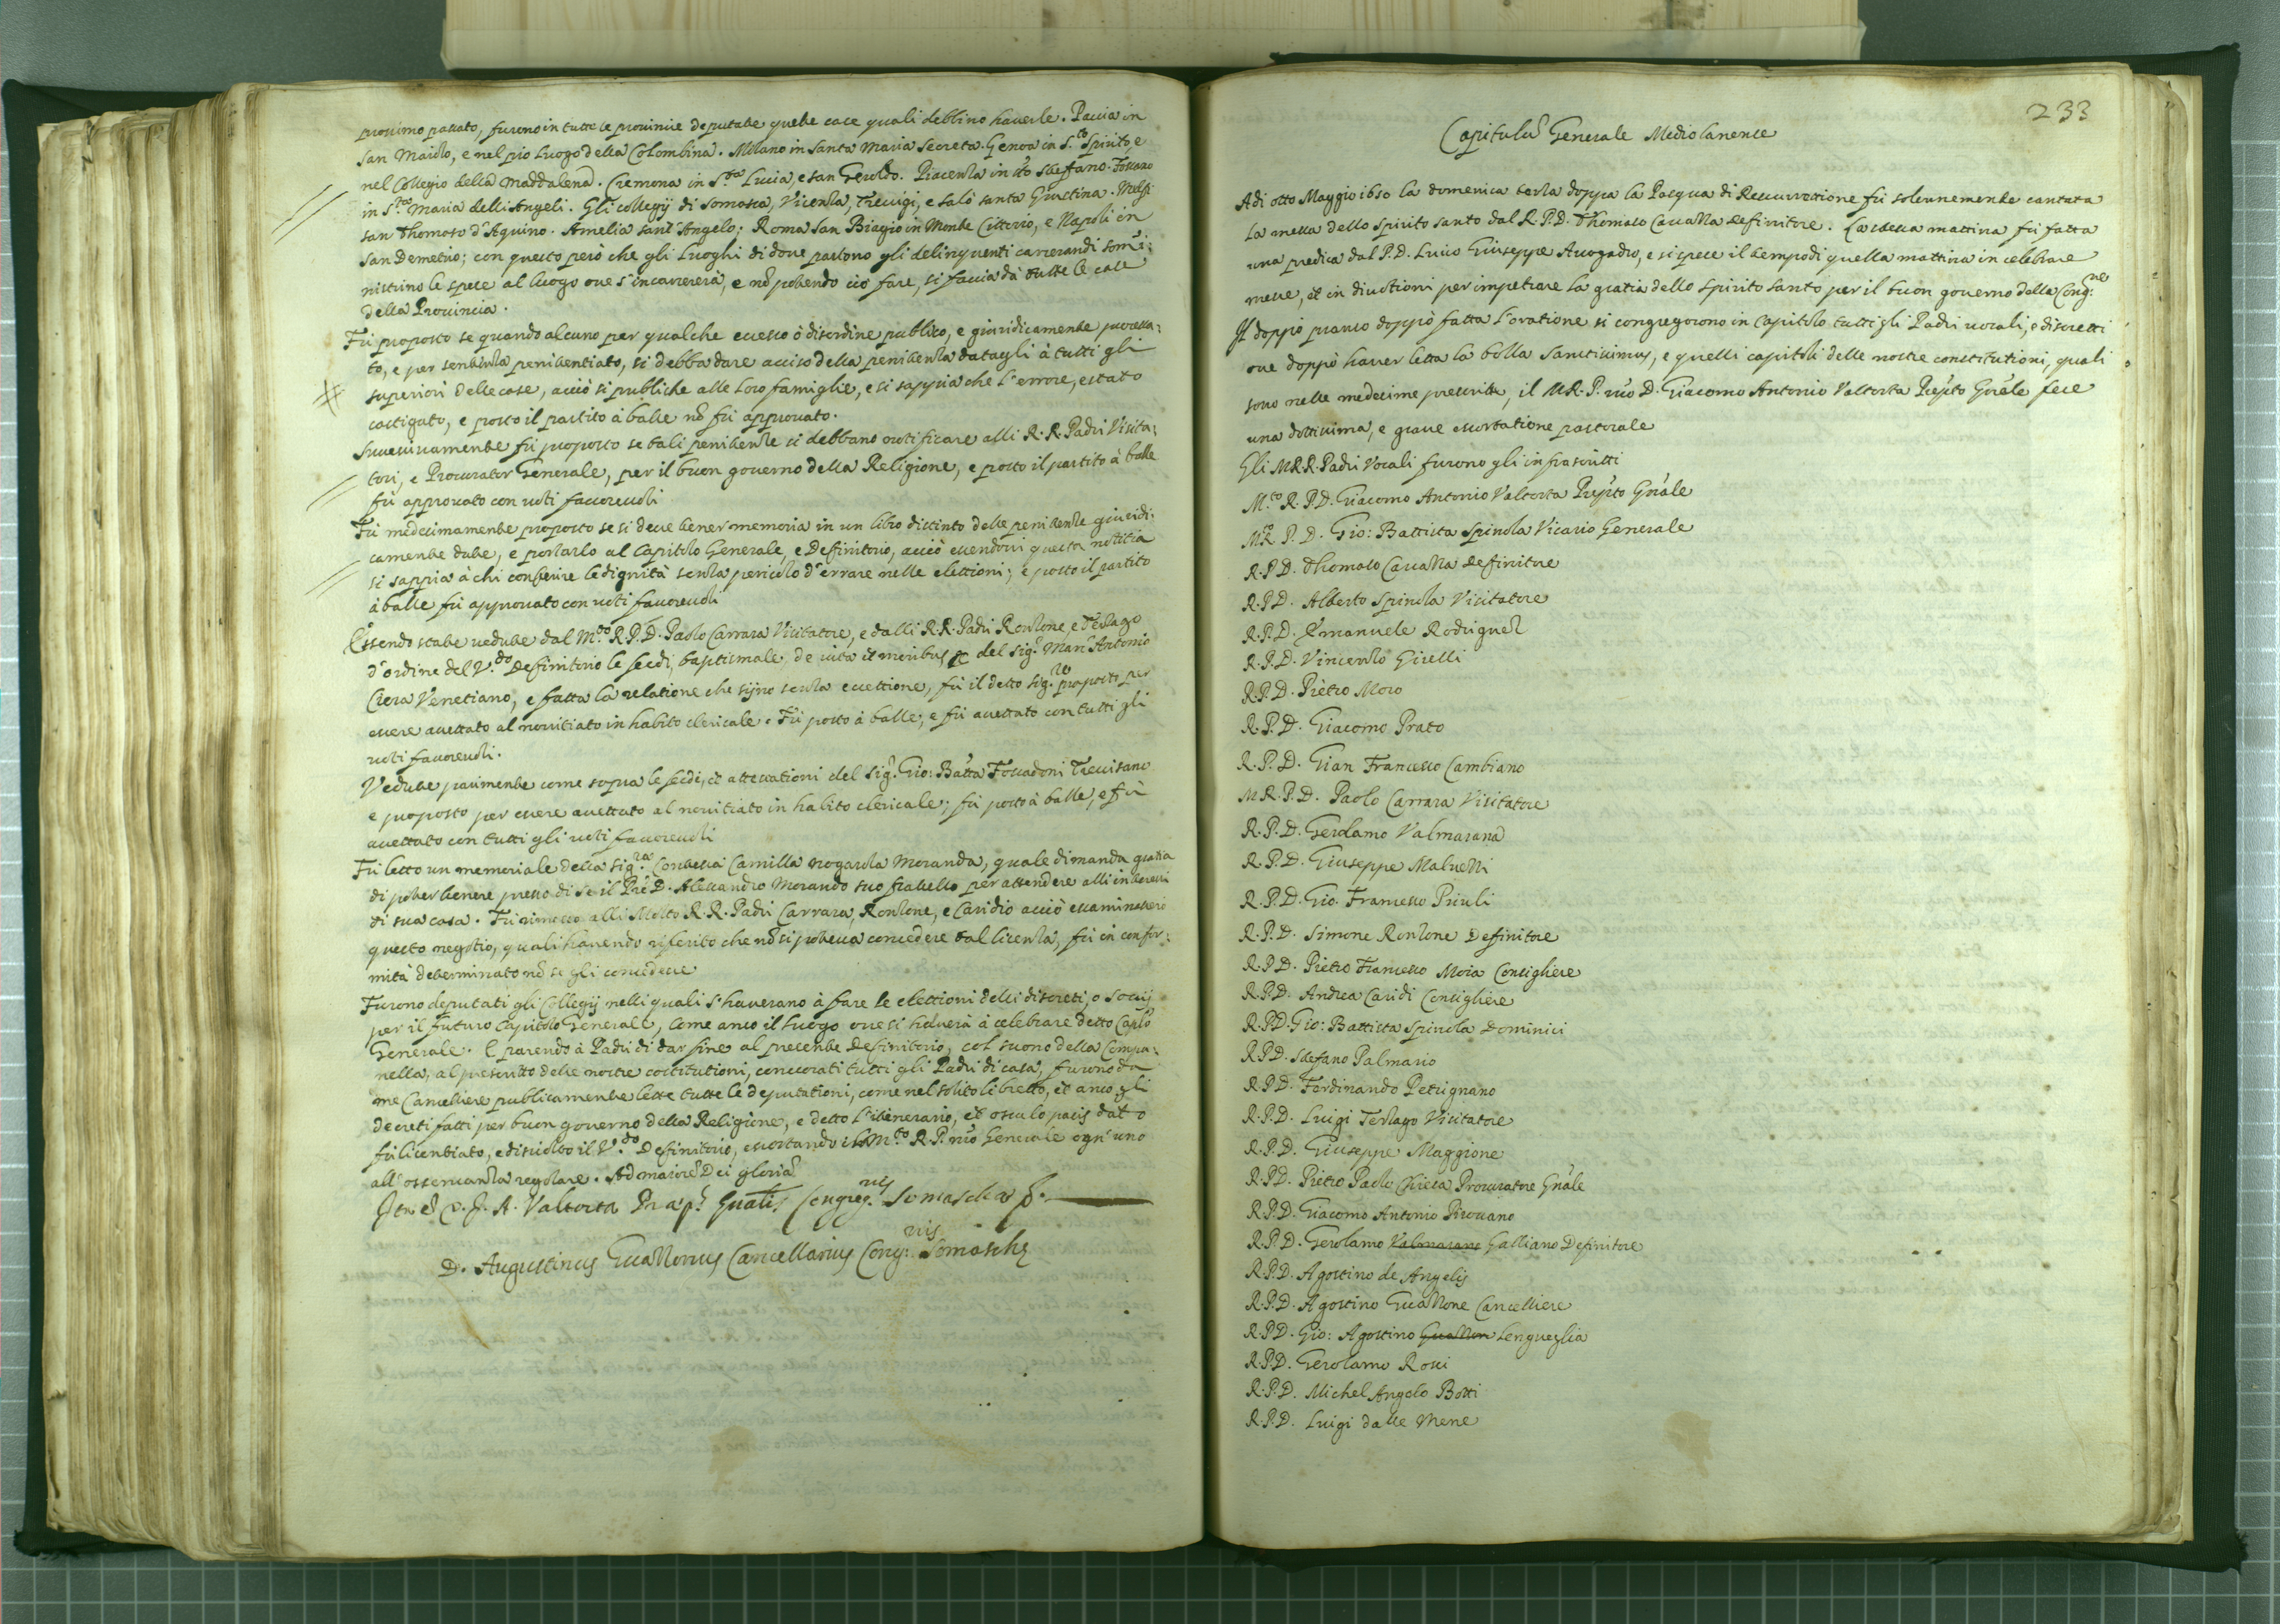 prossimo passato, furono in tutte le provincie deputate quelle case quali debbino haverle. Pavia in
San Maiolo, e nel pio luogo della Colombina. Milano in Santa Maria Secreta. Genoa in S.to Spirito, e
nel Collegio della Maddalena. Cremona in S.ta Lucia, e san Geroldo. Piacenza in sto Steffano. Fossano
in S.ta Maria delli Angeli. Gli collegij di Somasca, Vicenza, Trevigi, e Salò santa Giustina. Melfi
san Thomaso d'Aquino. Amelia sant'Angelo; Roma San Biagio in Monte Cittorio, e Napoli in
San Demetrio; con questo però che gli luoghi di dove partono gli delinquenti carcerandi som̃i:
nistrino le spese al luogo ove s'incarcererà, e nõ potendo ciò fare, si faccia dà tutte le case
della Provincia.
Fù proposto se quando alcuno per qualche eccesso ò disordine publico, e giuridicamente processa:
to, e per sentenza penitentiato, si debba dare aviso della penitenza datagli à tutti gli
superiori delle case, acciò si publiche alle loro famiglie, e si sappia che l'errore, è stato
castigato, e posto il partito à balle nõ fù approvato.
Successivamente fù proposto se tali penitenze si debbano notificare alli R.R. Padri Visita:
tori, e Procurator Generale, per il buon governo della Religione, e posto il partito à balle
fù approvato con voti favorevoli
Fù medesimamente proposto se si deve tener memoria in un libro distinto delle penitenze giuridi:
camente date, e portarlo al Capitolo Generale, e Definitorio, acciò essendovi questa notitia
si sappia à chi conferire le dignità senza pericolo d'errare nelle elettioni; e posto il partito
à balle fù approvato con voti favorevoli
Essendo state vedute dal M.to R.P.D. Paolo Carrara Visitatore, e dalli R.R. Padri Ronzone, e Terzago
d'ordine del V.do Definitorio le fedi, baptismale, de vita et moribus &c del sig.r Marc'Antonio
Ciera Venetiano, e fatta la relatione che sijno senza eccettione, fù il detto sig.re proposto per
essere accettato al novitiato in habito clericale. Fù posto à balle, e fù accettato con tutti gli
voti favorevoli.
Vedute parimente come sopra le fedi, et attestationi del sig.r Gio: Batta Foscadoni Trevisano
e proposto per essere accettato al novitiato in habito clericale; fù posto à balle, e fù
accettato con tutti gli voti favorevoli
Fù letto un memoriale della sig.ra Contessa Camilla Nogarola Moranda, quale dimanda gratia
di poter tenere presso di se il Pre D. Alessandro Morando suo fratello per attendere alli interessi
di sua casa. Fù rimesso alli Molto R.R. Padri Carrara, Ronzone, e Caridio acciò essaminassero
questo negotio, quali havendo riferito che nõ si poteva concedere tal licenza, fù in confor:
mità determinato nõ se gli concedesse
Furono deputati gli Collegij nelli quali s'haverano à fare le elettioni delli discreti, o socij
per il futuro Capitolo Generale, come anco il luogo ove si haverà à celebrare detto Caplo
Generale. E parendo à Padri di dar fine al presente Definitorio, col suono della Campa:
nella, al prescritto delle nostre costitutioni, convocati tutti gli Padri di casa, furono da
me Cancelliere publicamente lette tutte le deputationi, come nel solito libretto, et anco gli
decreti fatti per buon governo della Religione, e detto l'itinerario, et osculo pacis dato
fù licentiato, e disciolto il V.do Definitorio, essortando il M.to R.P. nro Generale ogn'uno
all'osservanza regolare. Ad maiorẽ Dei gloriã
Ita est D. J. A. Valtorta Præp.s Gnalis Congreg.nis Somaschæ
D. Augustinus Guazzonus Cancellarius Cong:nis Somaschę
233
Capitulũ Generale Mediolanense
Adi otto Maggio 1650 la domenica terza doppo la Pasqua di Resurrettione fù solennemente cantata
la messa dello Spirito santo dal R.P.D. Thomaso Cavazza Definitore. La stessa mattina fù fatta
una predica dal P.D. Lucio Giuseppe Avogadro, e si spese il tempo di quella mattina in celebrare
messe, et in divotioni per impetrare la gratia dello Spirito santo per il buon governo della Cong:ne
Il doppo pranso doppò fatta l'oratione si congregorono in Capitolo tutti gli Padri vocali, e discretti
ove doppò haver letta la bolla Sanctissimus, e quelli capitoli delle nostre constitutioni, quali
sono nelle medesime prescritte, il M.R.P. nro D. Giacomo Antonio Valtorta Prepto Gnãle fece
una dottissima, e grave essortatione pastorale
Gli M.R.R. Padri Vocali furono gli infrascritti
M.to R.P.D. Giacomo Antonio Valtorta Prepto Gnãle
M.R. P. D. Gio: Battista Spinola Vicario Generale
R.P.D. Thomaso Cavazza Definitore
R.P.D. Alberto Spinola Visitatore
R.P.D. Emanuele Rodriguez
R.P.D. Vincenzo Girelli
R.P.D. Pietro Moro
R.P.D. Giacomo Prato
R.P.D. Gian Francesco Cambiano
M.R.P.D. Paolo Carrara Visitatore
R.P.D. Gerolamo Valmarana
R.P.D. Giuseppe Malvezzi
R.P.D. Gio. Francesco Priuli
R.P.D. Simone Ronzone Definitore
R.P.D. Pietro Francesco Moia Consigliere
R.P.D. Andrea Caridi Consigliere
R.P.D. Gio: Battista Spinola Dominici
R.P.D. Stefano Palmario
R.P.D. Ferdinando Petrignano
R.P.D. Luigi Terzago Visitatore
R.P.D. Giuseppe Maggione
R.P.D. Pietro Paolo Chiesa Procuratore Gnãle
R.P.D. Giacomo Antonio Pirovano
R.P.D. Gerolamo Valmarano Galliano Definitore
R.P.D. Agostino de Angelis
R.P.D. Agostino Guazzone Cancelliere
R.P.D. Gio: Agostino Guazzon Lengueglia
R.P.D. Gerolamo Rossi
R.P.D. Michel Angelo Botti
R.P.D. Luigi dalle Mene